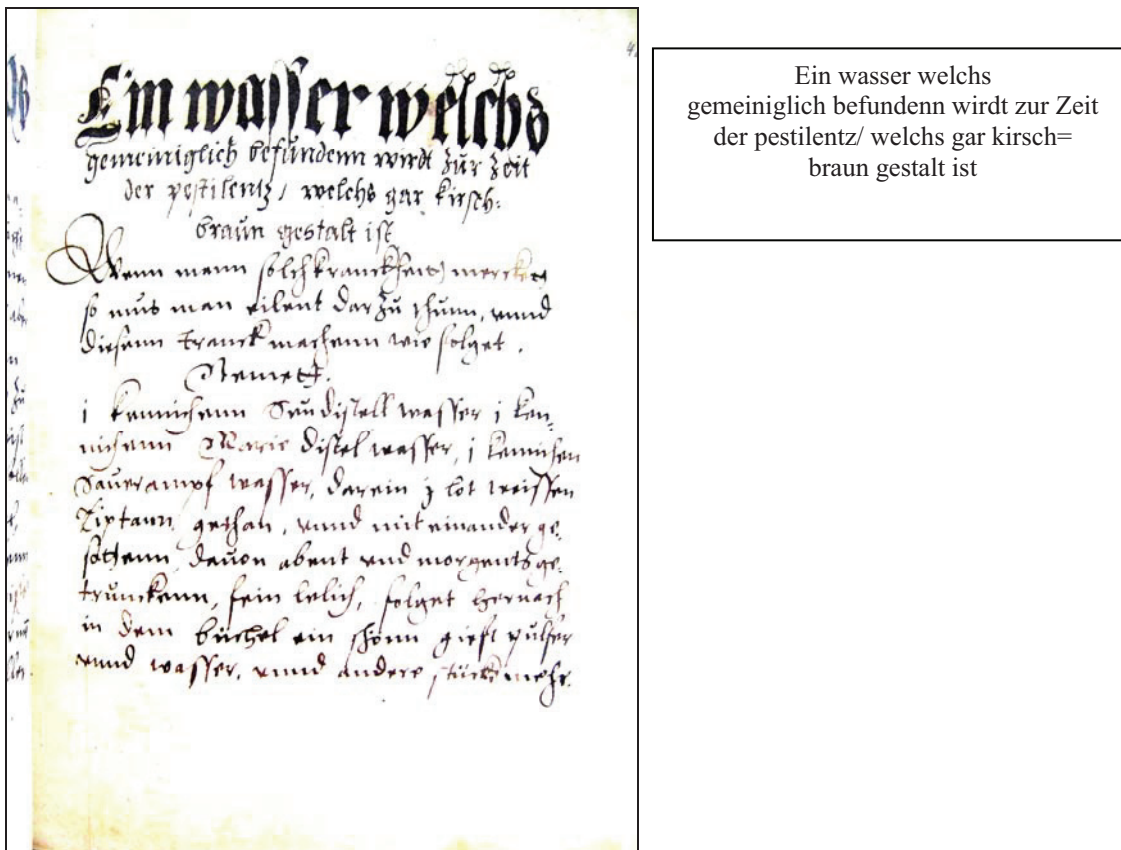 Ein wasser welchs
gemeiniglich befundenn wirdt zur Zeit
der pestilentz/ welchs gar kirsch=
braun gestalt ist
Wenn mann solch kranckheitt mercket
so mus man eilent darzu thunn, vnnd
diesenn tranck machenn wie folget.
Nemett.
j kennichenn Seudistell wasser j ken=
nichenn Marie distel wasser, j kennichen
Sauerampf wasser, darein lot weissen
gethan, vnnd mit einander ge=
sottenn, dauon abent vnd morgents ge=
trunckenn, fein folget hernach
in dem büchel ein schonn gieft pulfer
vnnd wasser, vnnd andere stück mehr.
Ein wasser welchs
gemeiniglich befundenn wirdt zur Zeit
der pestilentz/ welchs gar kirsch=
braun gestalt ist